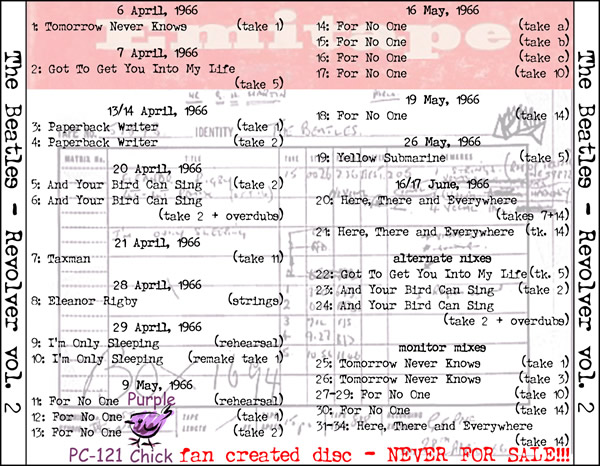 The Beatles - Revolver vol. 2
Emitape
6 April, 1966
1: Tomorrow Never Knows (take 1)
7 April, 1966
2: Got To Get You Into My Life
(take 5)
13/14 April, 1966
3: Paperback Writer (take 1)
4: Paperback Writer (take 2)
20 April, 1966
5: And Your Bird Can Sing (take 2)
6: And Your Bird Can Sing
(take 2 + overdubs)
21 April, 1966
7: Taxman (take 11)
28 April, 1966
8: Eleanor Rigby (strings)
29 April, 1966
9: I'm Only Sleeping (rehearsal)
10: I'm Only Sleeping (remake take 1)
9 May, 1966
11: For No One (rehearsal)
12: For No One (take 1)
13: For No One (take 2)
Purple
Chick
PC-121
16 May, 1966
14: For No One (take a)
15: For No One (take b)
16: For No One (take c)
17: For No One (take 10)
19 May, 1966
18: For No One (take 14)
26 May, 1966
19: Yellow Submarine (take 5)
16/17 June, 1966
20: Here, There and Everywhere
(takes 7+14)
21: Here, There and Everywhere (tk. 14)
alternate mixes
22: Got To Get You Into My Life (tk. 5)
23: And Your Bird Can Sing (take 2)
24: And Your Bird Can Sing
(take 2 + overdubs)
monitor mixes
25: Tomorrow Never Knows (take 1)
26: Tomorrow Never Knows (take 3)
27-29: For No One (take 10)
30: For No One (take 14)
31-34: Here, There and Everywhere
(take 14)
fan created disc - NEVER FOR SALE!!!
The Beatles - Revolver vol. 2
IDENTITY
THE BEATLES.
MATRIX No.
TITLE
TYPE
REMARKS
TAPE